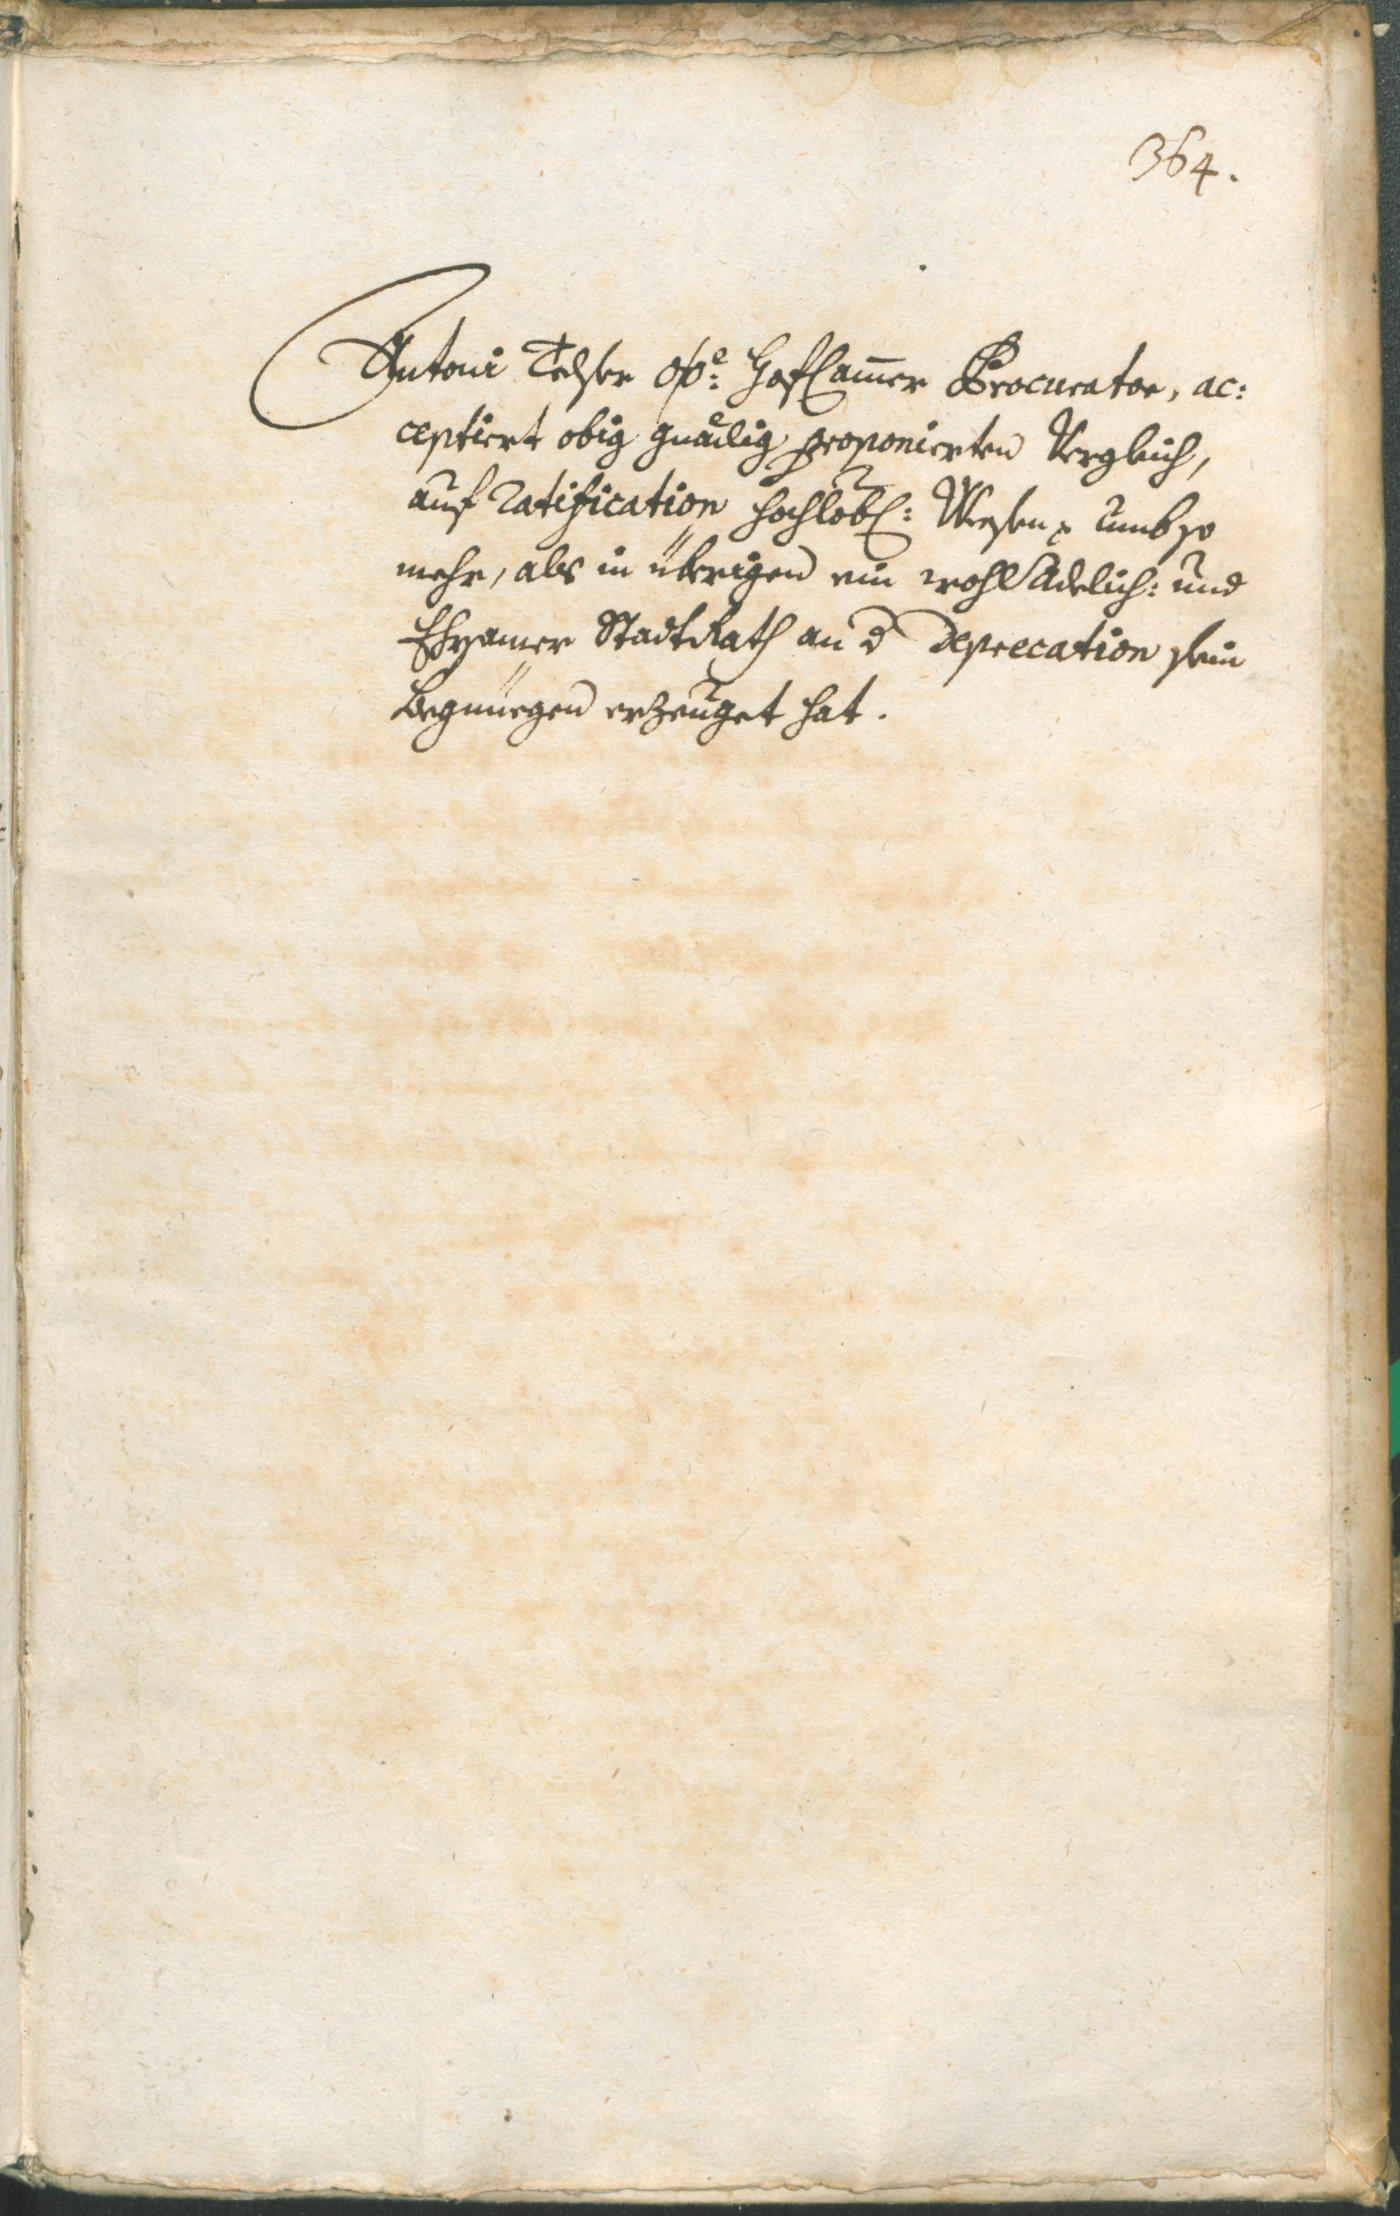 364.
Antoni Telser o/ö: HofCam̅er Procurator, ac:
ceptiert obig gnädig proponierten Vergleich,
auf ratification hochlobl: Wesens umbso
mehr, als in übrigen ein wohlAdelich: und
Ehrsamer StadtRath an d deprecation sein
Begnüegen erzeuget hat.